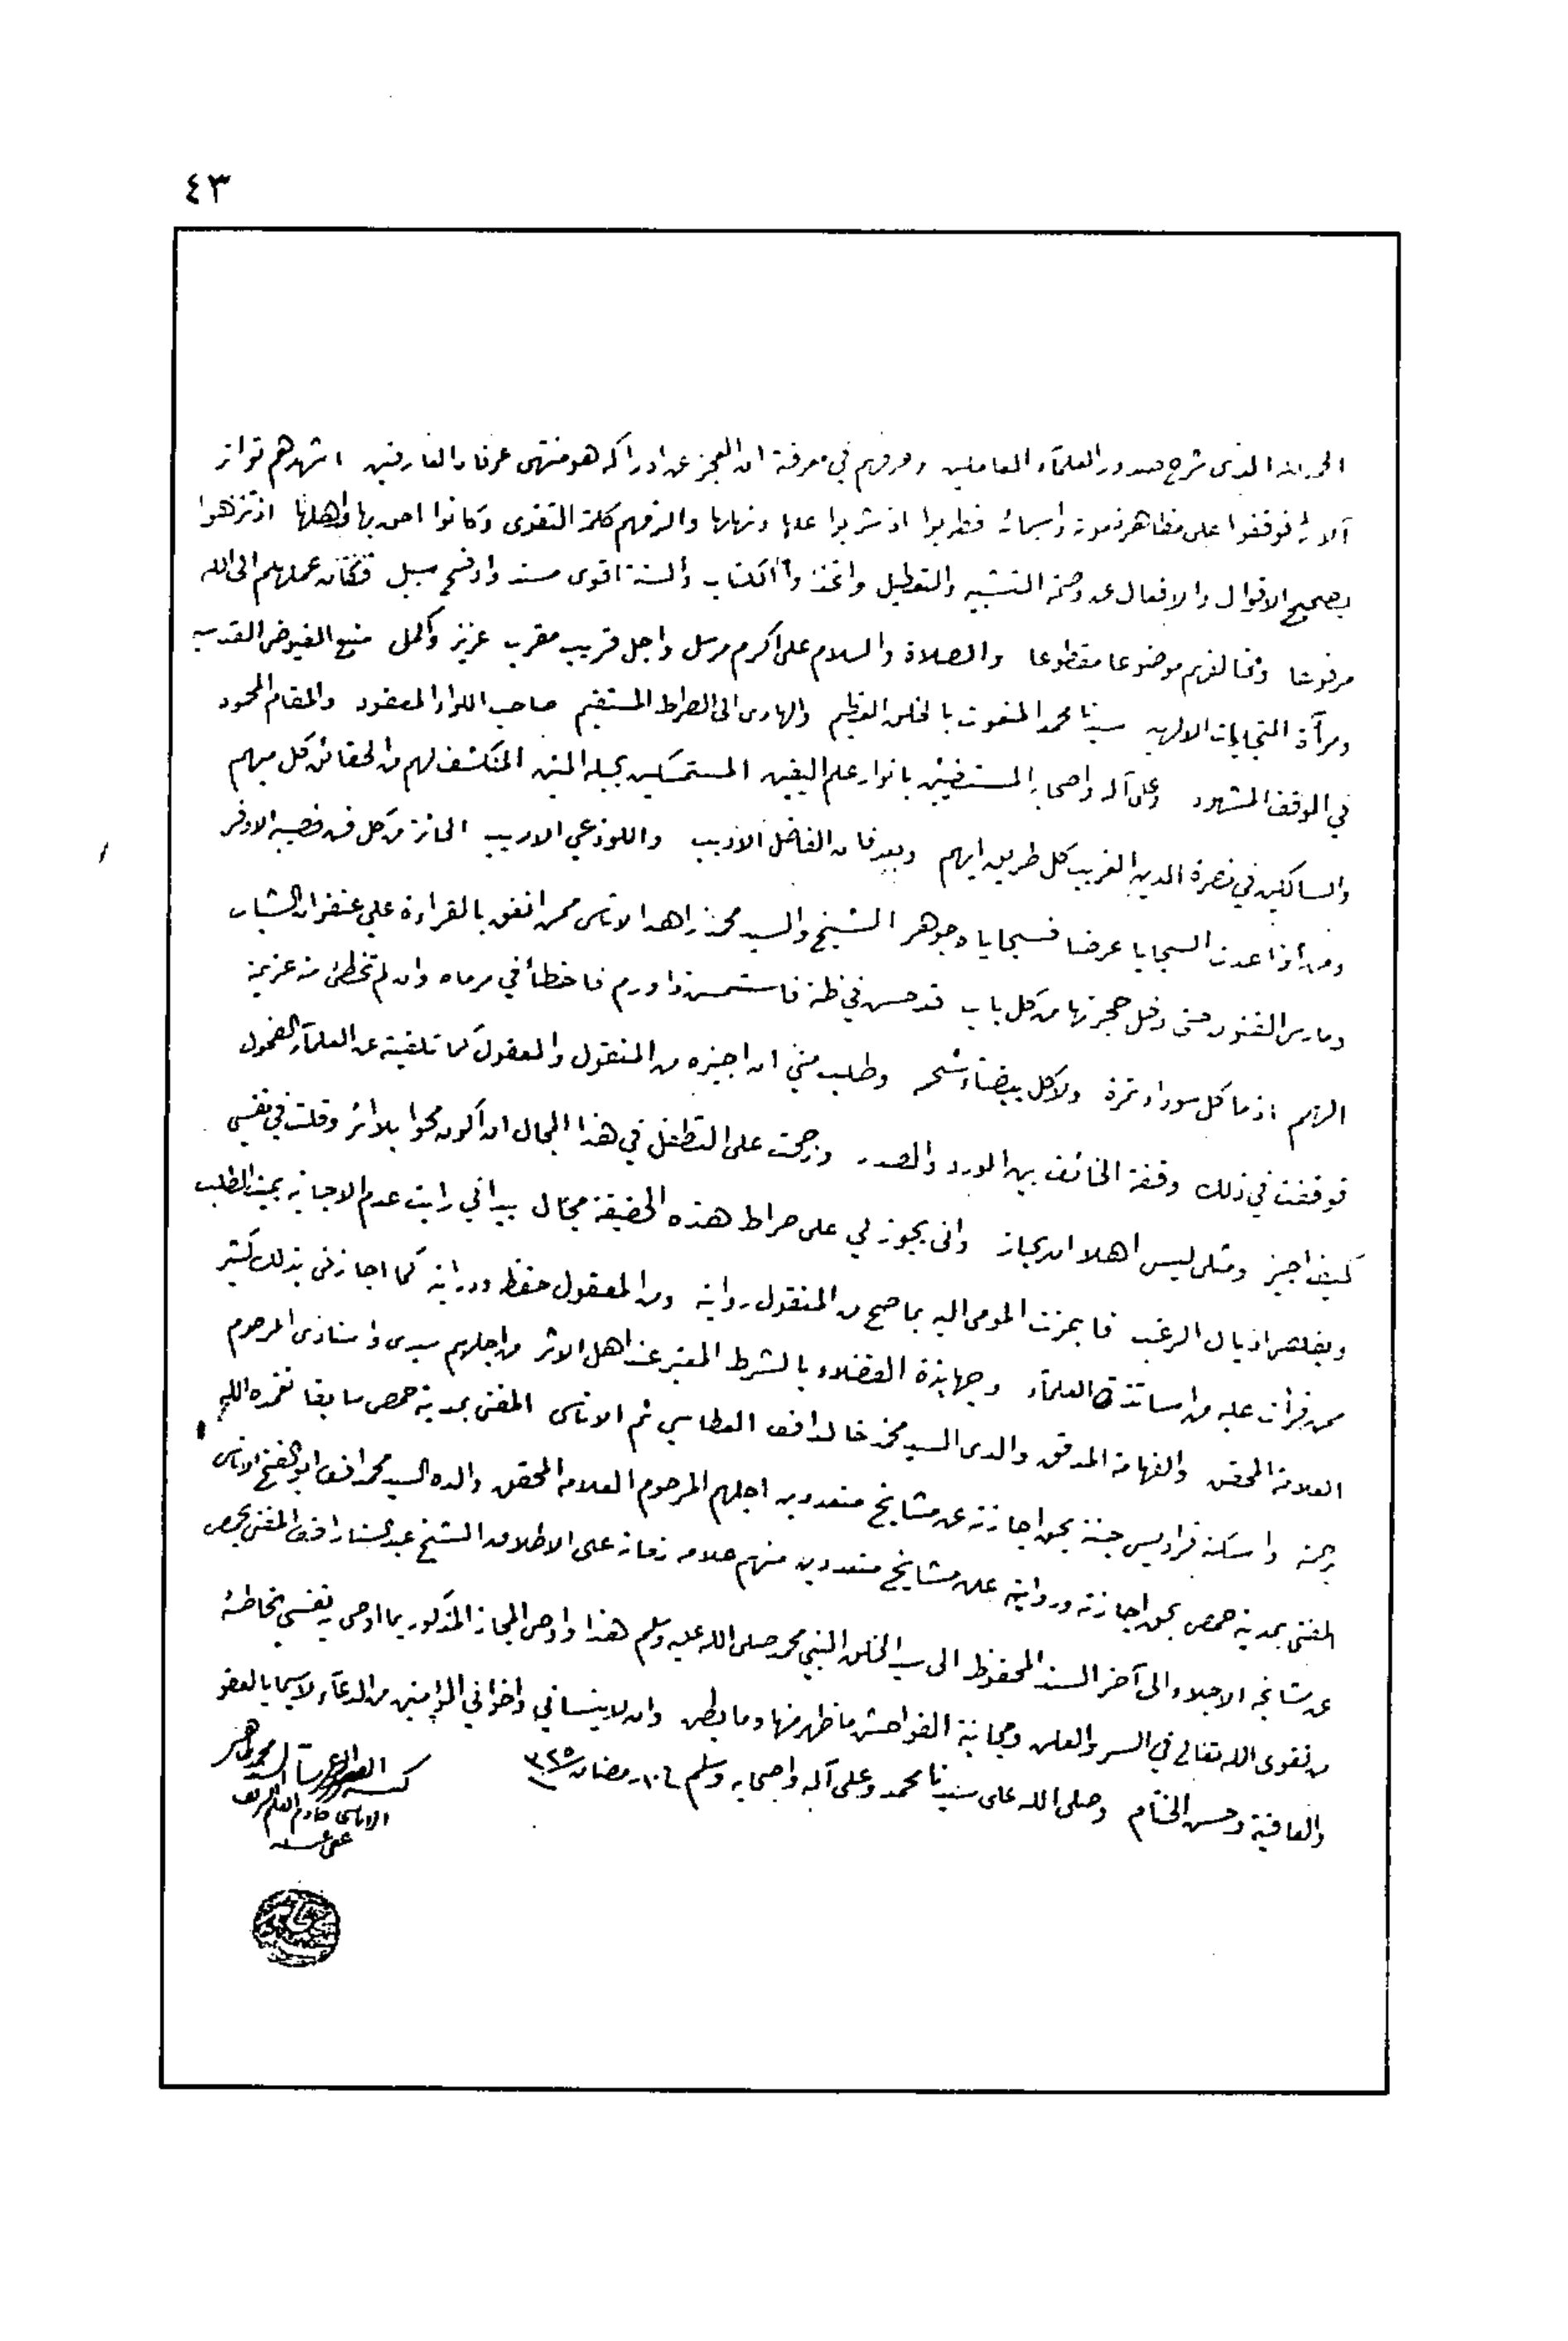 ٤٣
الحمد لله الذى شرح صدور العلمآء العاملين وعرفهم في معرفة ان العجز عن ادراكه هو منتهى عرفان العارفين اشهدهم تواتر
آلائه فوقفوا على مظاهر نعوته واسمائه فطربوا اذ شربوا علها ونهلها والزمهم كلمة التقوى وكانوا احق بها واهلها اذ تنزهوا
بصحيح الاقوال والافعال عن وصمة التشبيه والتعطيل واتخذوا الكتاب والسنة اقوى مسند واوضح سبيل فكان عملهم الى الله
مرفوعا ومخالفهم موضوعا مقطوعا والصلاة والسلام على اكرم مرسل واجل قريب مقرب عزيز واكمل منبع الفيوض القدسيه
ومرآة التجليات الالهيه سيدنا محمد المنعوت بالخلق العظيم والهادى الى الصراط المستقيم صاحب اللواء المعقود والمقام المحمود
في الموقف المشهود وعلى آله واصحابه المستضيئين بانوار علم اليقين المستمسكين بحبله المتين المنكشف لهم من الحقائق كل مبهم
والسالكين في نصرة الدين الغريب كل طريق ايهم وبعد فان الفاضل الأديب واللوذعي الاريب الحائز من كل فن نصيبه الاوفر
ومن اذا عدت السجايا عرضا فسجاياه جوهر الشيخ والسيد محمد زاهد الاتاسى ممن انفق بالقراءة علي عنفوان الشباب
ومارس الفنون حتى دخل حجرتها من كل باب قد حسن في ظنه فاستسمن ذا ورم فاخطأ في مرماه وان لم تخطئ منه عزيمة
الهمم اذ ما كل سوداء تمرة ولا كل بيضاء شحمه وطلب مني ان اجيزه من المنقول والمعقول كما تلقيته عن العلمآء الفحول
فوقفت في ذلك وقفة الخائف بين المورد والمصدر ورجحت على التطفل في هذا المجال ان اكون محوا بلا اثر وقلت في نفسي
كيف اجيز ومثلى ليس اهلا ان يجاز وانى يجوز لي على صراط هذه الحقيقة مجال بيد اني رايت عدم الاجابة يميت الطلب
ويقلص اذيال الرغب فاجزت المومى اليه بما صح من المنقول رواية ومن المعقول حفظ ودراية كما اجازنى بذلك كثير
ممن قرات عليه من اساتذة العلمآء وجهابذة الفضلاء بالشرط المعتبر عند اهل الاثر من اجلهم سيدى واستاذى المرحوم
العلامة المحقق والفهامة المدقق والدى السيد محمد خالد افندى العطاسي ثم الاتاسى المفتى بمدينة حمص سابقا تغمده الله
برحمته واسكنه فراديس جنته بحق اجازته عن مشايخ متعددين اجلهم المرحوم العلامه المحقق والده السيد محمد افندى ابو الفتح الاتاسى
المفتى بمدينة حمص بحق اجازته وروايته عن مشايخ متعددين منهم علامه زمانه على الاطلاق الشيخ عبد الستار افندى المفتى بحمص
عن مشايخه الاجلاء الى آخر السند المحفوظ الى سيد الخلق النبي محمد صلى الله عليه وسلم هذا واوصى المجاز المذكور بما اوصى به نفسي الخاطئة
من تقوى الله تعالى في السر والعلن ومجانبة الفواحش ما ظهر منها وما بطن وان لا ينساني واخواني المؤمنين من الدعآء لا سيما بالعفو
والعافية وحسن الختام وصلى الله على سيدنا محمد وعلى آله واصحابه وسلم رمضان
كتبه الفقير اليه السيد محمد طاهر
الاتاسى خادم العلم الشريف
عفى عنه